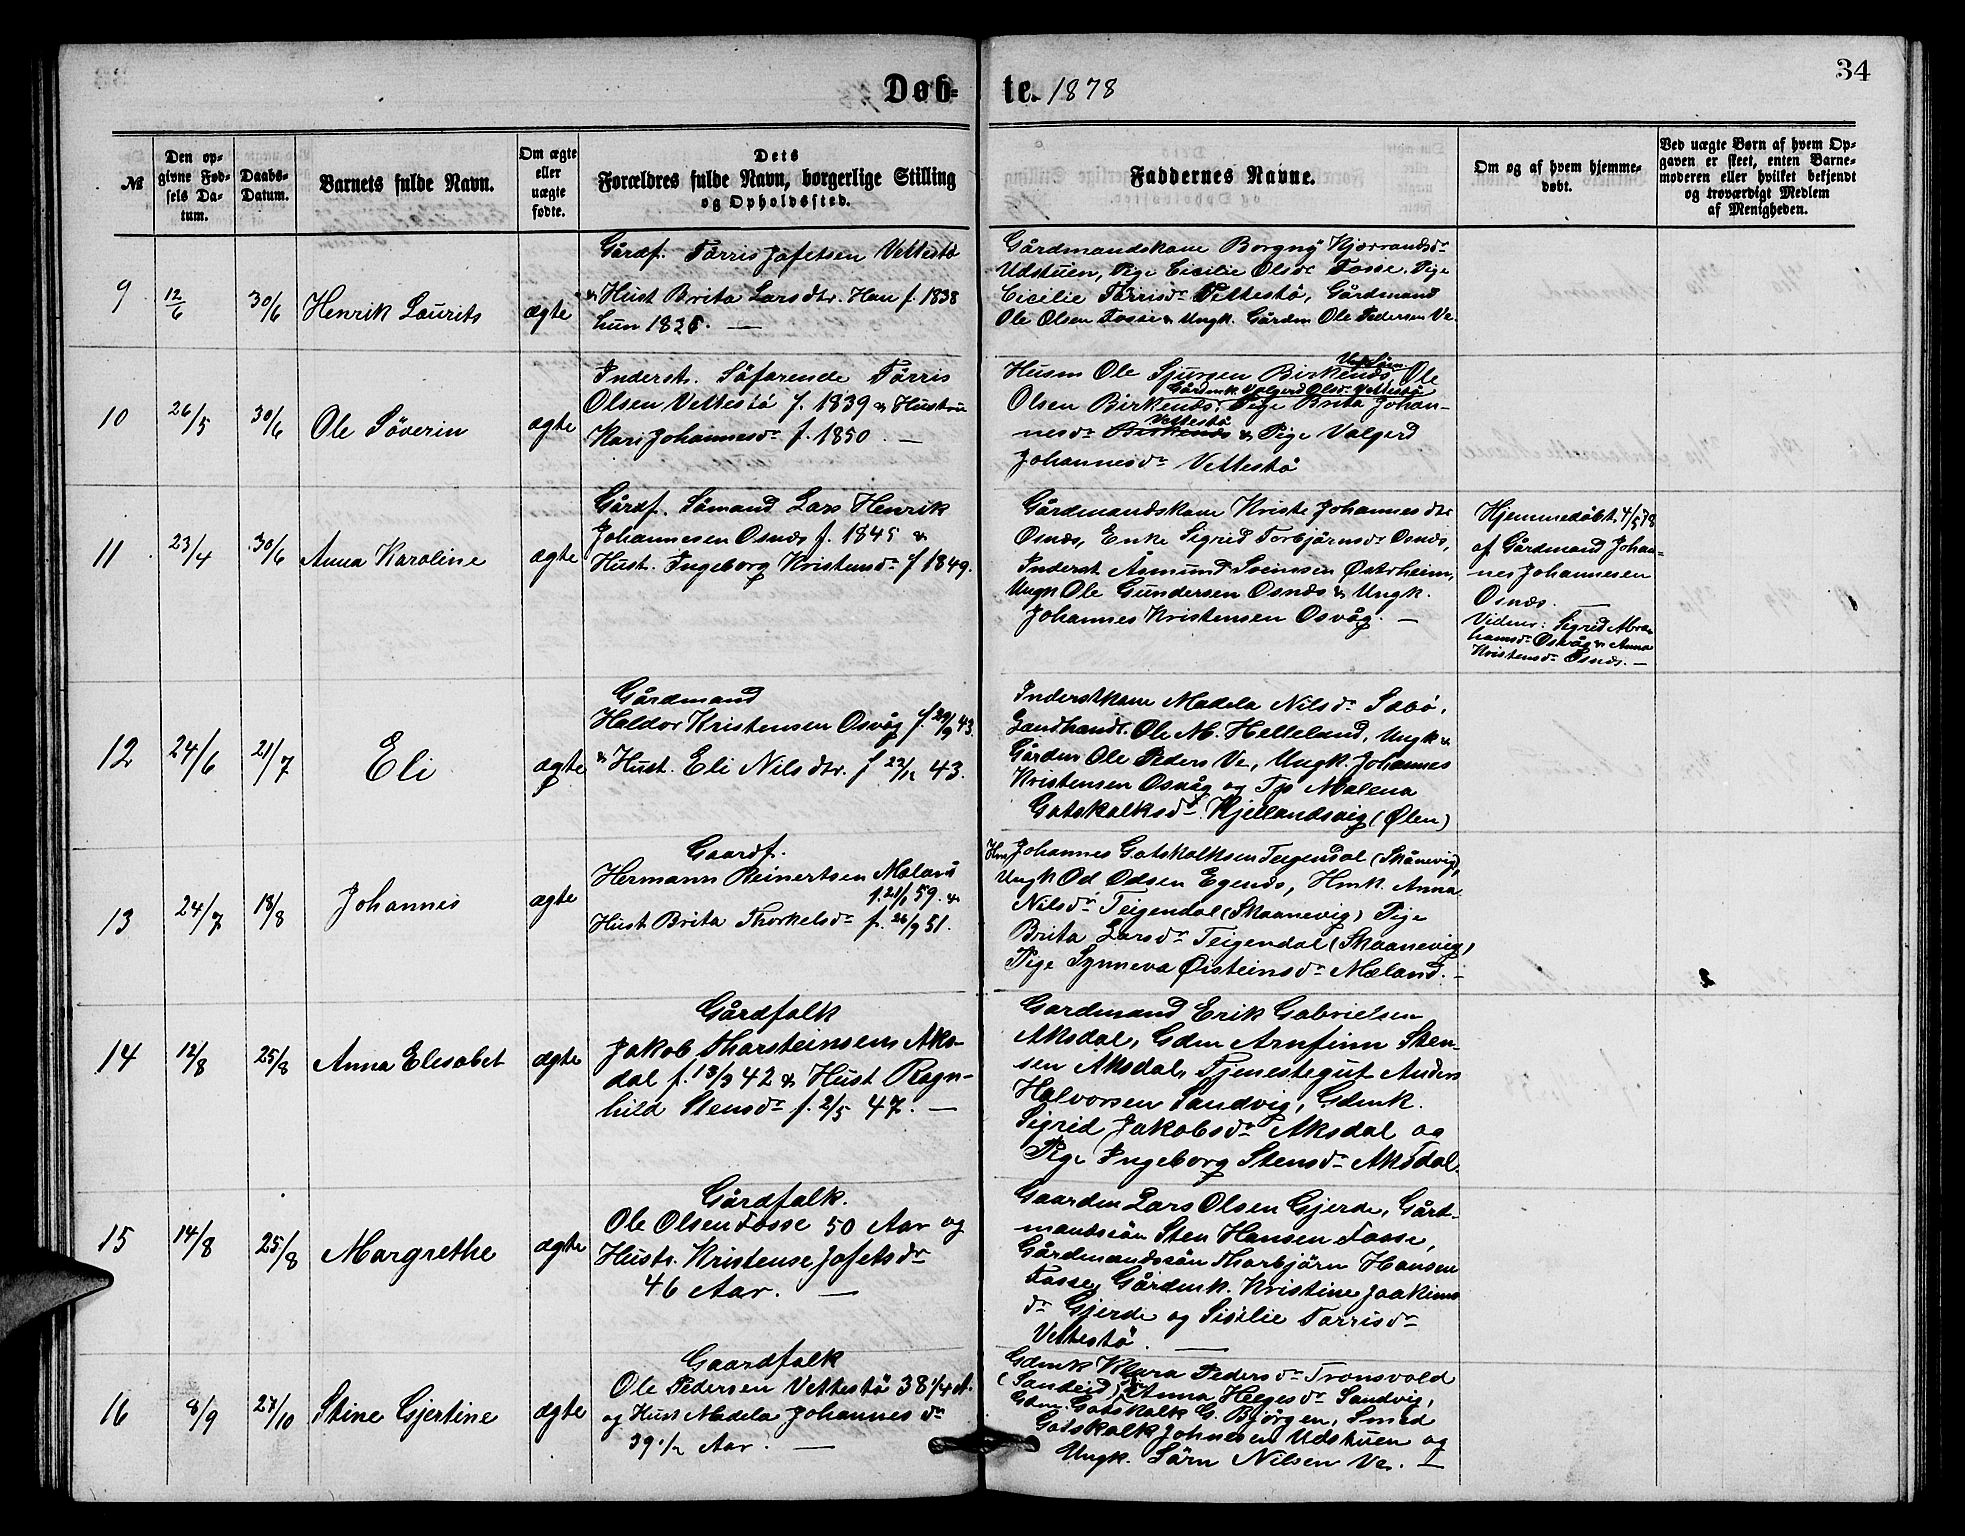 34
Døb-
te. 1878
№
Den op-
givne Fød-
sels Da-
tum.
Daabs-
Datum.
Barnets fulde Navn.
Om ægte
eller
uægte
fødte.
Dets
Forældres fulde Navn, borgerlige Stilling
og Opholdssted.
Faddernes Navne.
Om og af hvem hjemme-
døbt.
Ved uægte Børn af hvem Op-
gaven er skeet, enten Barne-
moderen eller hvilket bekjendt
og troværdigt Medlem
af Menigheden.
9
12/6
30/6
Henrik Lourits
ægte
Gårdf. Tørris Jafetsen Vettestø
& Hust Brita Larsdtr. Han f. 1838
hun 1825. —
Gårdmandskone Borgny
Udstuen, Pige Cicilie Olsdr Fosse, Pige
Cicilie Tørrisdr Vettestø, Gårdmand
Ole Olsen Fosse & Ungk. Gårdm Ole Pedersen Ve.
10
26/5
30/6
Ole Søverin
ægte
Inderst. Søfarende Tørris
Olsen Vettestø f. 1839 & Hustru
Kari Johannesdr f. 1850. —
Husm Ole Sjursen Birkenes, Ole
Gårdmk. Valgerd Olsdr Vettestø
Olsen Birkenes, Pige Brita Johan-
Vettestø
nesdr Birkenes & Pige Valgerd
Johannesdr Vettestø
11
23/4
30/6
Anna Karoline
ægte
Gårdf. Sømand Lars Henrik
Johannesen Osnes f. 1845 &
Hust. Ingeborg Kristensdr f 1849.
Gårdmandskone Kriste Johannesdtr
Osnes, Enke Sigrid Torbjørnsdr Osnes,
Inderst Åsmund Svensen Østrheim,
Ungk Ole Gundersen Osnes & Ungk.
Johannes Kristensen Osvåg. —
Hjemmedøbt 4/5 78
af Gårdmand Johan-
nes Johannesen
Osnes.
Vidner: Sigrid Abra-
hamsdr Osvåg & Anna
Kristensdr Osnes. —
12
24/6
21/7
Eli
ægte
Gårdmand
Haldor Kristensen Osvåg f. 29/9 43.
& Hust. Eli Nilsdtr. f 22/12 43.
Inderstkone Madela Nilsdr Sebø,
Landhandl. Ole M. Helleland, Ungk &
Gårdm Ole Peders Ve, Ungk. Johannes
Kristensen Osvåg og Tjp Malena
Gotskalksdr Kjellandsvig (Ølen)
13
24/7
18/8
Johannes
ægte
Gaardf.
Hermann Reinertsen Meland
f. 21/1 59. &
Hust Brita Thorkelsdr f. 26/9 51.
Hm Johannes Gotskalksen Teigendal (Skånevig),
Ungk Od Odsen Egenes, Hmk. Anna
Nilsdr Teigendal (Skaanevig) Pige
Brita Larsdr Teigendal (Skaanevig)
Pige Synneva Øisteinsdr Mæland. —
14
12/8
25/8
Anna Elisabet
ægte
Gårdfolk
Jakob Thorsteinsen Aks-
dal f. 13/3 42 & Hust Ragn-
hild Stensdr f. 2/5 47. —
Gardmand Erik Gabrielsen
Aksdal, Gdm Arnfinn Sten-
sen Aksdal, Tjenestegut Anders
Halvorsen Sandvig, Gdmk.
Sigrid Jakobsdr Aksdal og
Pige Ingeborg Stensdr Aksdal.
15
14/8
25/8
Margrethe
ægte
Gårdfolk.
Ole Olsen Fosse 50 Aar og
Hustr. Kristense Jafetsdr
46 Aar. —
Gaardm Lars Olsen Gjerde, Gård-
mandssøn Sten Hansen Fosse,
Gårdmandssøn Thorbjørn Hansen
Fosse, Gårdmk. Kristine Joakims
dr Gjerde og Sisilie Tørrisdr
Vettestø. —
16
8/9
27/10
Stine Gjertine
ægte
Gaardfolk
Ole Pedersen Vettestø 38 1/4 A.
og Hust Madela Johannesdr
39 1/2 Aar. —
Gdmk Mara Pedersdr Tronsvold
(Sandeid), Anna Helgesdr Sandvig,
Gdm. Gotskalk G. Bjørgen, Smed
Gotskalk Johnesen Udstuen og
Ungk. Sørn Nilsen Ve. —